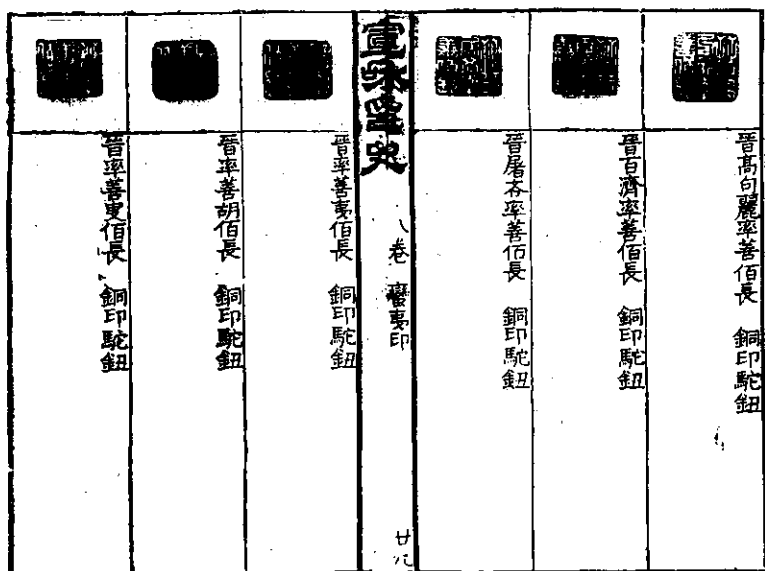 晉高句麗率善佰長　銅印駝鈕
晉百濟率善佰長　銅印駝鈕
晉屠各率善佰長　銅印駝鈕
宣和印史
八卷　蠻夷印
廿九
晉率善夷佰長　銅印駝鈕
晉率善胡佰長　銅印駝鈕
晉率善叟佰長　銅印駝鈕